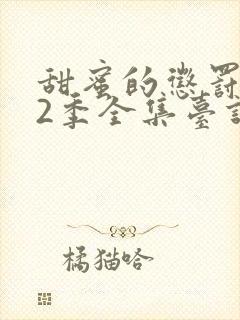 甜蜜的懲罰
2季全集臺詞
橘猫哈